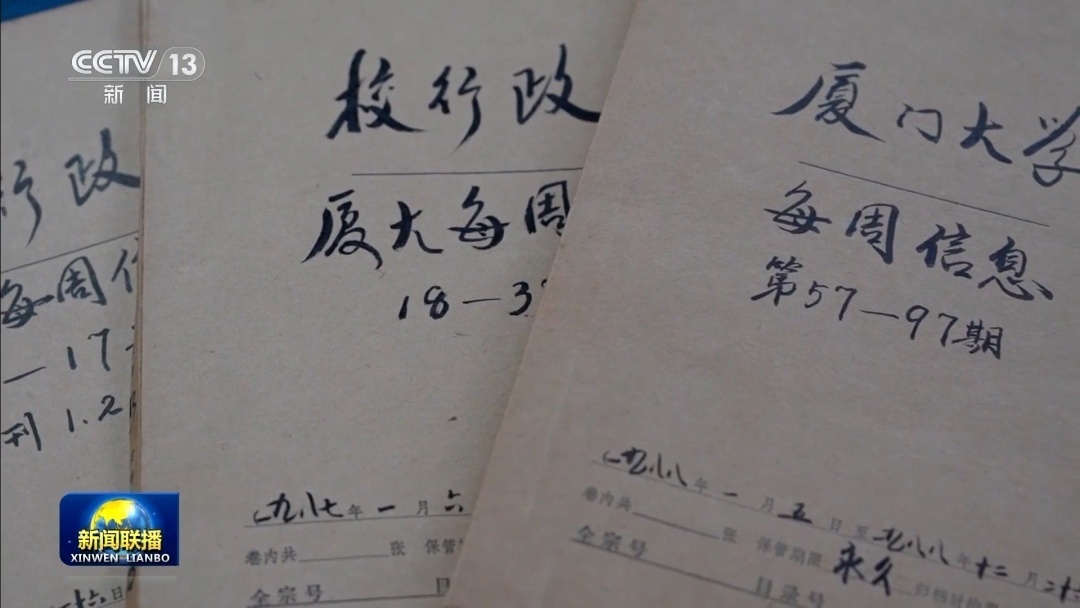 CCTV 13
新闻
行政
每周信
一17
刊1.2
十六日
校行政
厦大每周
18一3
一九八七年一月六
卷内共 张 保管
全宗号 目
厦门大学
每周信息
第57一97期
一九八八年一月五日至一九八八年十二月二十
卷内共 张 保管期限 永久 归档
全宗号 目录号
新闻联播
XINWEN-LIANBO